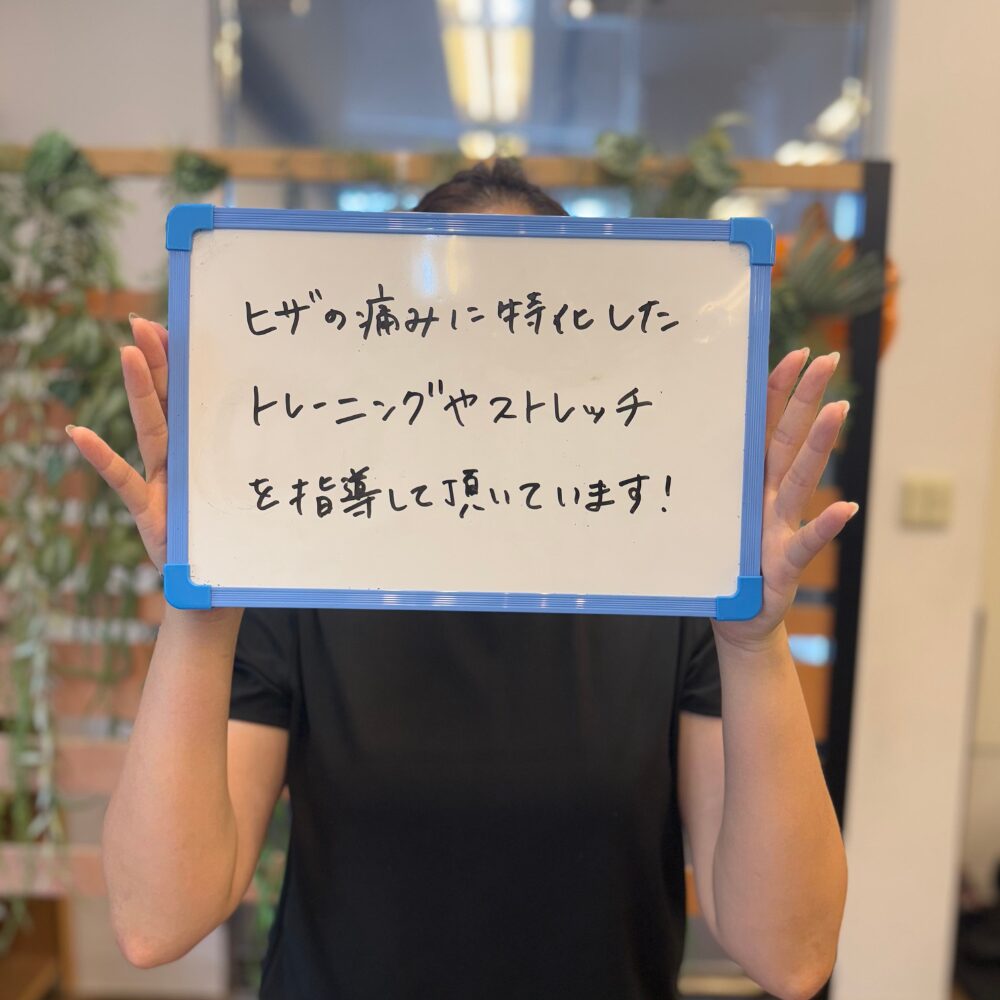 ヒザの痛みに特化した
トレーニングやストレッチ
を指導して頂いています!